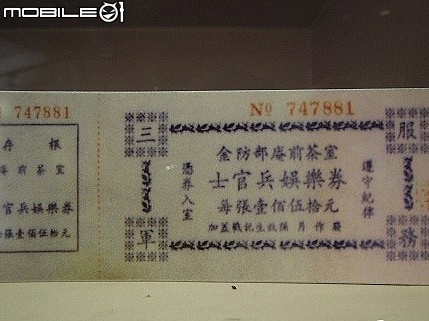 MOBILE01
747881
存根
庵前茶室
官兵娛樂券
張壹佰伍拾元
No 747881
三軍
服務
憑券入室
金防部庵前茶室
士官兵娛樂券
每張壹佰伍拾元
加蓋戳記生效限 月作廢
遵守紀律